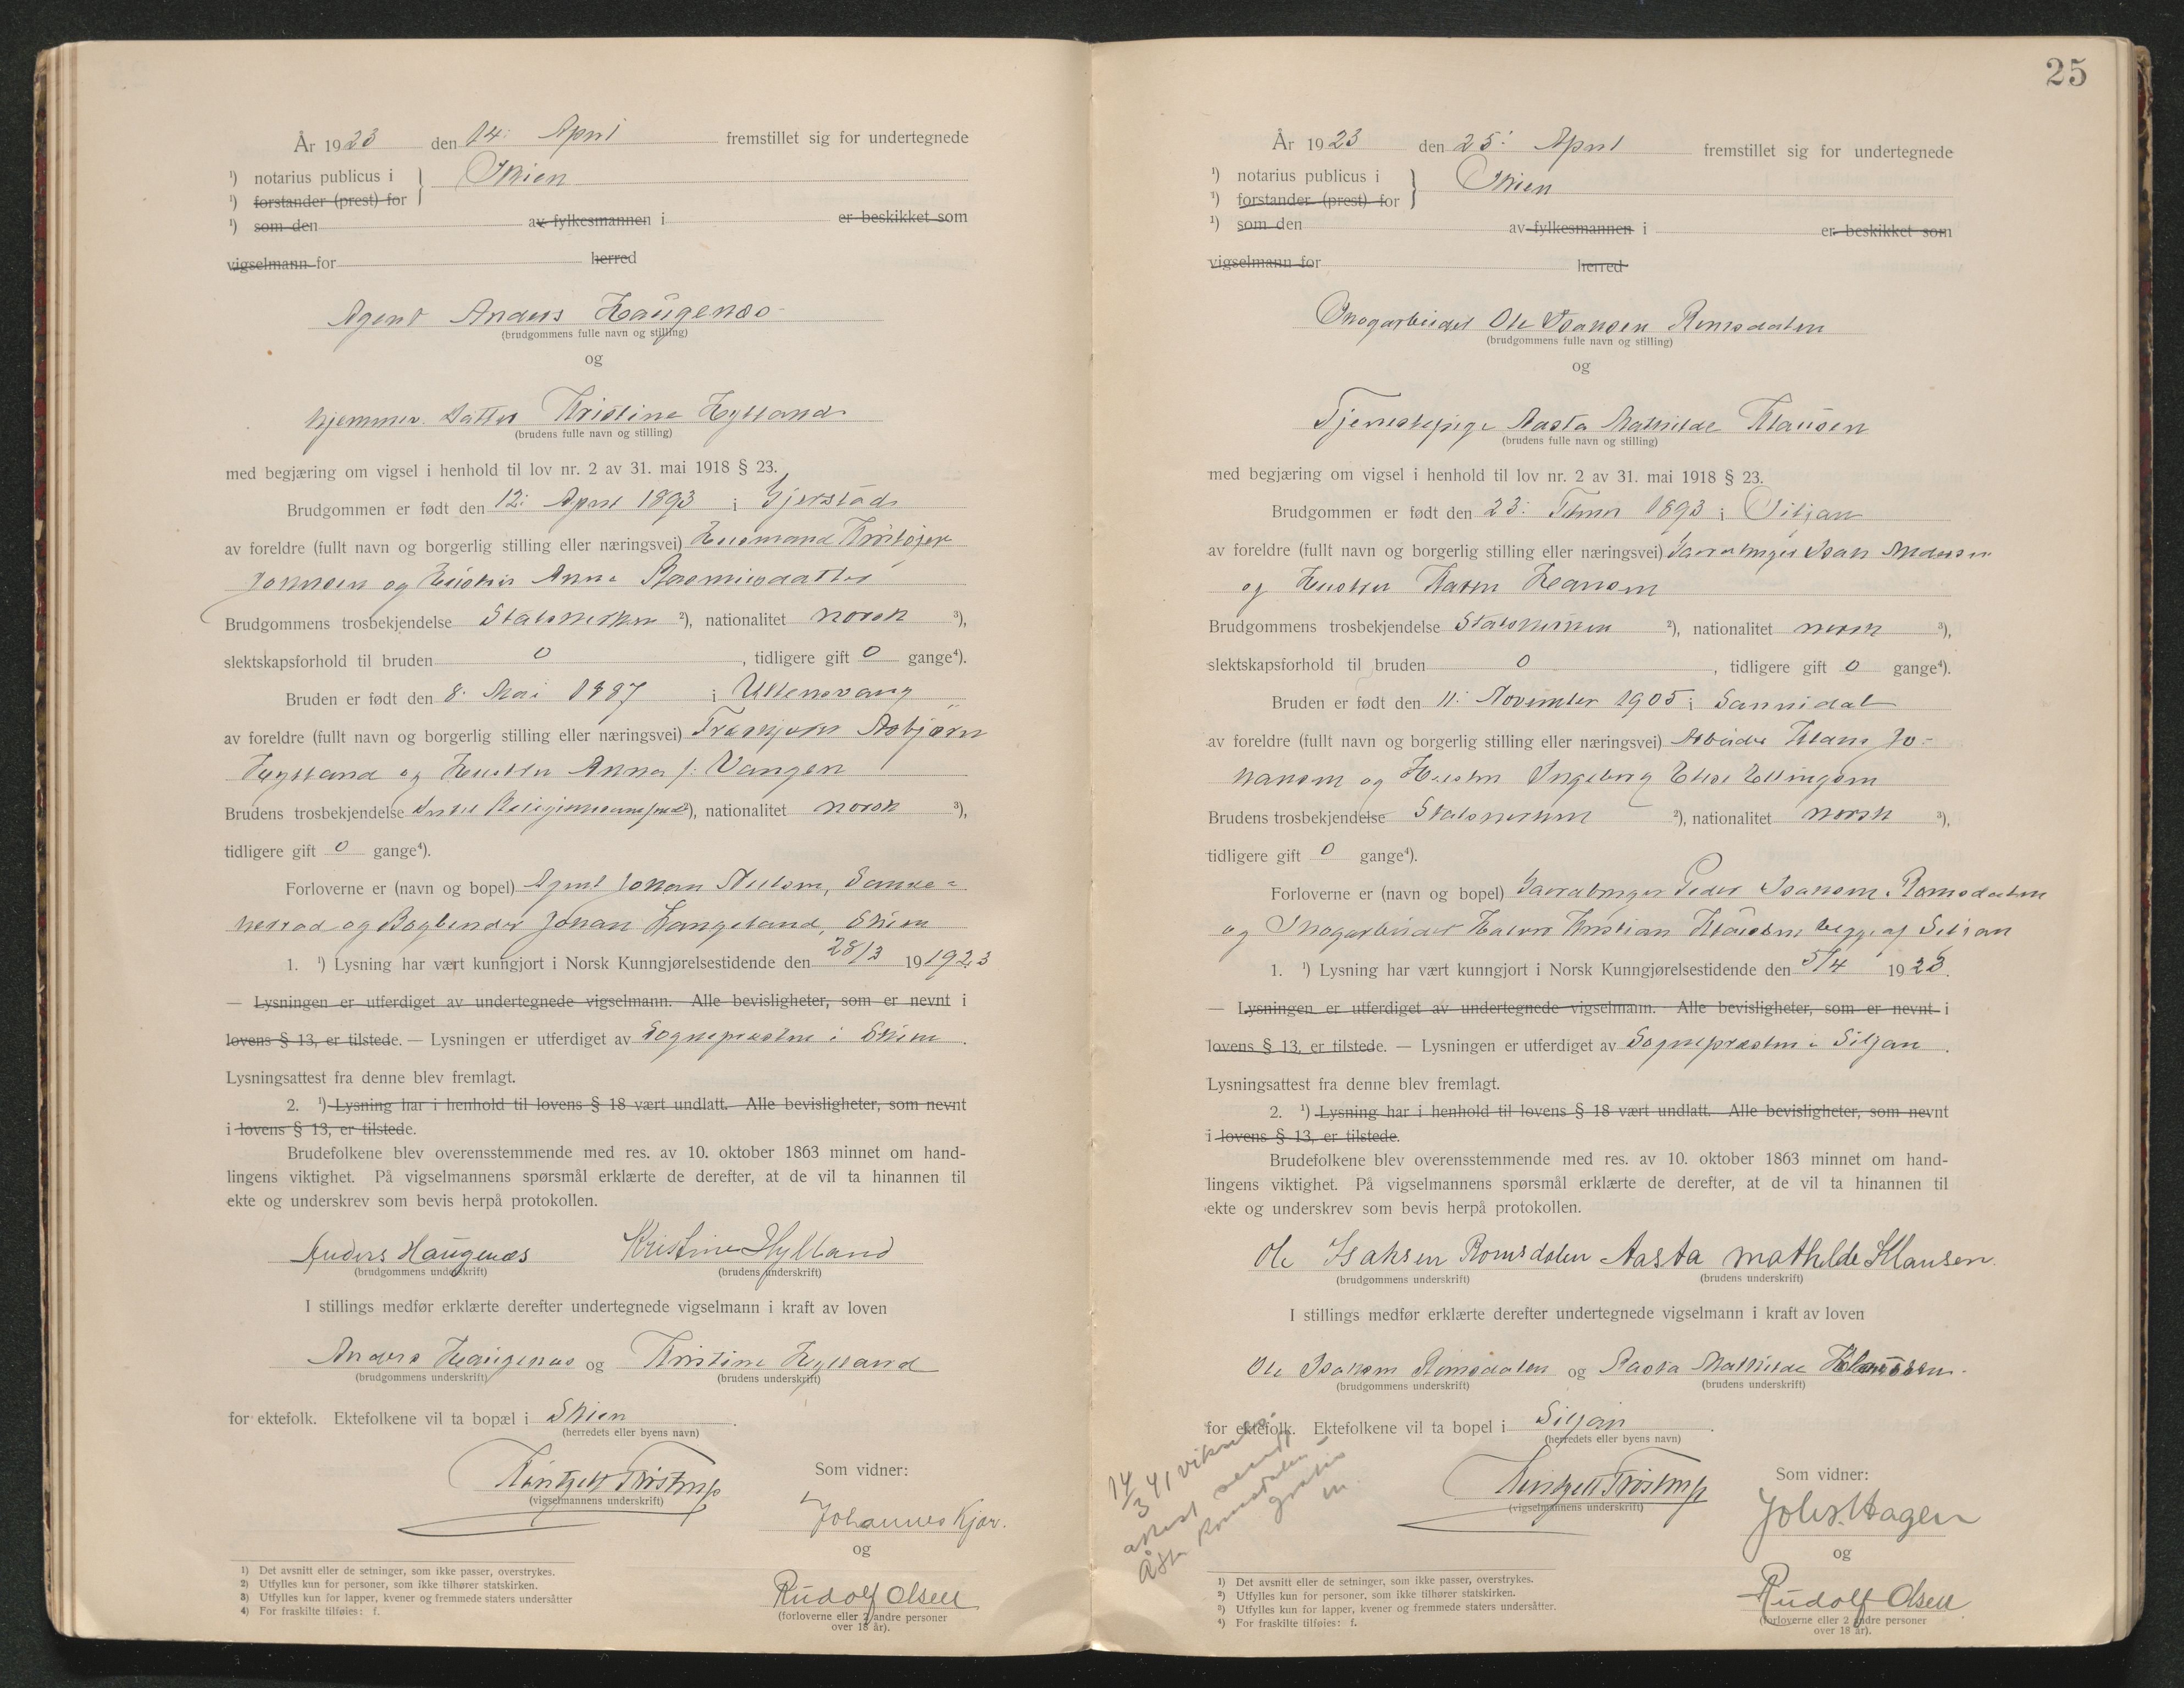 År 1923 den 14: April fremstillet sig for undertegnede
¹) notarius publicus i } Skien
¹) forstander (prest) for
¹) som den av fylkesmannen i er beskikket som
vigselmann for herred
Agent Anders Haugenæs
(brudgommens fulle navn og stilling)
og
hjemmev. datter Kristine Hylland
(brudens fulle navn og stilling)
med begjæring om vigsel i henhold til lov nr. 2 av 31. mai 1918 § 23.
Brudgommen er født den 12: April 1893 i Gjerstad
av foreldre (fullt navn og borgerlig stilling eller næringsvei) Husmand Kristofer
Johnsen og Hustru Anne Rasmusdatter
Brudgommens trosbekjendelse Statskirken ²), nationalitet norsk ³),
slektskapsforhold til bruden 0, tidligere gift 0 gange⁴).
Bruden er født den 8. Mai 1887 i Ullensvang
av foreldre (fullt navn og borgerlig stilling eller næringsvei) Asbjørn
Hylland og Hustru Anna f. Vangen
Brudens trosbekjendelse ²), nationalitet norsk ³),
tidligere gift 0 gange⁴).
Forloverne er (navn og bopel) Agent Johan Nilsen, Sande-
herred og Bogbinder Johan Langeland, Skien
1. ¹) Lysning har vært kunngjort i Norsk Kunngjørelsestidende den 28/3 19 1923
— Lysningen er utferdiget av undertegnede vigselmann. Alle bevisligheter, som er nevnt i
lovens § 13, er tilstede. — Lysningen er utferdiget av Sognepresten i Skien.
Lysningsattest fra denne blev fremlagt.
2. ¹) Lysning har i henhold til lovens § 18 vært undlatt. Alle bevisligheter, som nevnt
i lovens § 13, er tilstede.
Brudefolkene blev overensstemmende med res. av 10. oktober 1863 minnet om hand-
lingens viktighet. På vigselmannens spørsmål erklærte de derefter, at de vil ta hinannen til
ekte og underskrev som bevis herpå protokollen.
Anders Haugenæs Kristine Hylland
(brudgommens underskrift) (brudens underskrift)
I stillings medfør erklærte derefter undertegnede vigselmann i kraft av loven
Anders Haugenæs og Kristine Hylland
(brudgommens underskrift) (brudens underskrift)
for ektefolk. Ektefolkene vil ta bopæl i Skien.
(herredets eller byens navn)
Som vidner:
(vigselmannens underskrift)
Johannes Kjær.
og
Rudolf Olsen
(forloverne eller 2 andre personer
over 18 år).
1) Det avsnitt eller de setninger, som ikke passer, overstrykes.
2) Utfylles kun for personer, som ikke tilhører statskirken.
3) Utfylles kun for lapper, kvener og fremmede staters undersåtter
4) For fraskilte tilføies: f.
25
År 1923 den 25: April fremstillet sig for undertegnede
¹) notarius publicus i } Skien
¹) forstander (prest) for
¹) som den av fylkesmannen i er beskikket som
vigselmann for herred
Skogarbeider Ole Isaksen Romsdalen
(brudgommens fulle navn og stilling)
og
Tjenestepige Aasta Mathilde Klausen
(brudens fulle navn og stilling)
med begjæring om vigsel i henhold til lov nr. 2 av 31. mai 1918 § 23.
Brudgommen er født den 23: Februar 1893 i Siljan
av foreldre (fullt navn og borgerlig stilling eller næringsvei) Gaardbruger Isak Andersen
og Hustru Karen Hansen
Brudgommens trosbekjendelse Statskirken ²), nationalitet norsk ³),
slektskapsforhold til bruden 0, tidligere gift 0 gange⁴).
Bruden er født den 11: November 1905 i Sannidal
av foreldre (fullt navn og borgerlig stilling eller næringsvei) Arbeider Klaus Jo-
hansen og Hustru Ingeborg Elise Ellingsen
Brudens trosbekjendelse Statskirken ²), nationalitet norsk ³),
tidligere gift 0 gange⁴).
Forloverne er (navn og bopel) Gaardbruger Peder Isaksen Romsdalen
og Skogarbeider Halvor Kristian Klausen begge af Siljan
1. ¹) Lysning har vært kunngjort i Norsk Kunngjørelsestidende den 5/4 1923.
— Lysningen er utferdiget av undertegnede vigselmann. Alle bevisligheter, som er nevnt i
lovens § 13, er tilstede. — Lysningen er utferdiget av Sognepresten i Siljan.
Lysningsattest fra denne blev fremlagt.
2. ¹) Lysning har i henhold til lovens § 18 vært undlatt. Alle bevisligheter, som nevnt
i lovens § 13, er tilstede.
Brudefolkene blev overensstemmende med res. av 10. oktober 1863 minnet om hand-
lingens viktighet. På vigselmannens spørsmål erklærte de derefter, at de vil ta hinannen til
ekte og underskrev som bevis herpå protokollen.
Ole Isaksen Romsdalen Aasta Mathilde Klausen.
(brudgommens underskrift) (brudens underskrift)
I stillings medfør erklærte derefter undertegnede vigselmann i kraft av loven
Ole Isaksen Romsdalen og Aasta Mathilde Klausen.
(brudgommens underskrift) (brudens underskrift)
for ektefolk. Ektefolkene vil ta bopel i Siljan.
(herredets eller byens navn)
14/3 41 vikselsattest sendt
Romsdalen gratis
Som vidner:
(vigselmannens underskrift)
Johs. Hagen
og
Rudolf Olsen
(forloverne eller 2 andre personer
over 18 år).
1) Det avsnitt eller de setninger, som ikke passer, overstrykes.
2) Utfylles kun for personer, som ikke tilhører statskirken.
3) Utfylles kun for lapper, kvener og fremmede staters undersåtter.
4) For fraskilte tilføies: f.